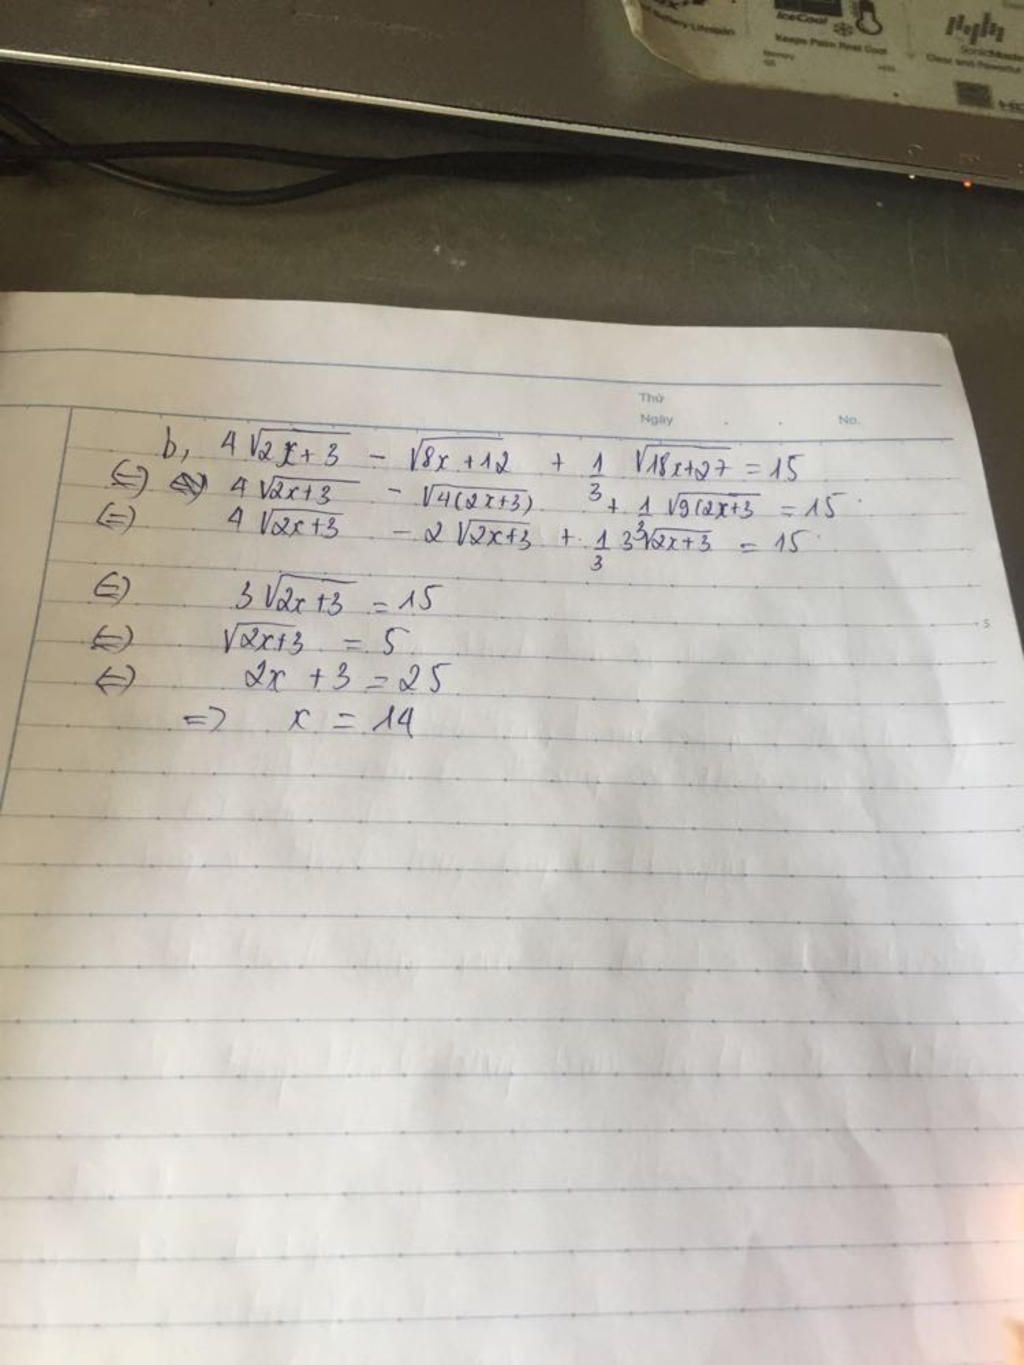 IceCool
Keeps Palm Rest Cool
SonicMaster
Clear and Powerful
Thứ
Ngày . . No.
b, 4√2x+3 - √8x+12 + 1/3 √18x+27 = 15
(=) 4√2x+3 - √4(2x+3) + 1/3 √9(2x+3 = 15
(=) 4√2x+3 - 2√2x+3 + 1/3 3√2x+3 = 15
(=) 3√2x+3 = 15
5
(=) √2x+3 = 5
(=) 2x + 3 = 25
=> x = 14